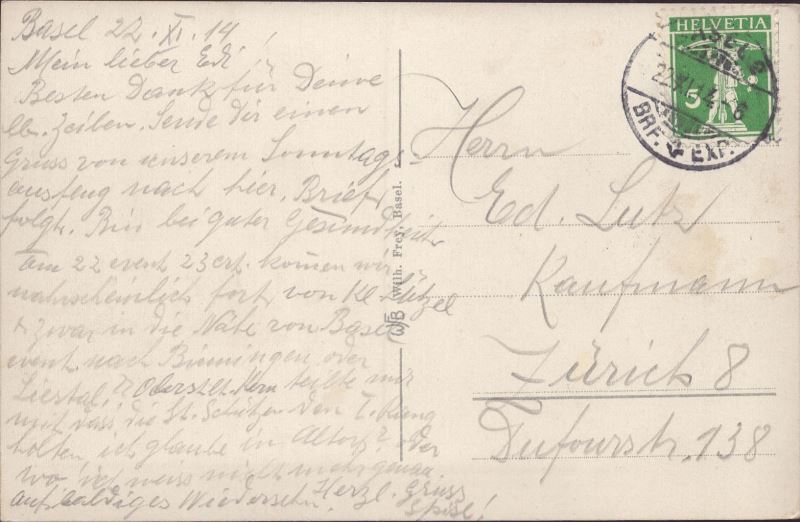 Basel 22. XI. 14 !
Mein lieber Edi
Besten Dank für Deine
lb. Zeilen. Sende Dir einen
Gruss von unserem Sonntags-
ausflug nach hier. Brief
folgt. Bin bei guter Gesundheit
Am 22 event 23 crt. kommen wir
wahrscheinlich fort von Kl. Lützel
& zwar in die Nähe von Basel
event. nach Binningen oder
Liestal. Oberstlt. teilte mir
mit dass die St. Schützen den I. Rang
holten ich glaube in Altorf? oder
wo ich weiss nicht mehr genau
auf baldiges Wiedersehn. Herzl. Gruss
W/B Wilh. Frey, Basel.
HELVETIA
5
BASEL 2
22.XI.14.-6
BRF. EXP.
Herrn
Ed. Lutz
Kaufmann
Zürich 8
Dufourstr. 138